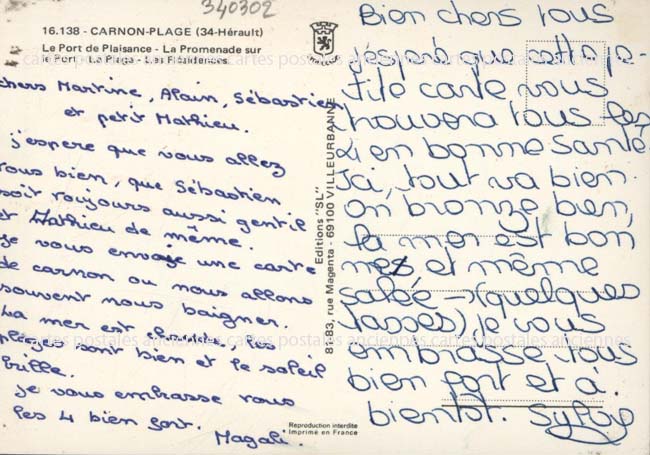 340302
16.138 - CARNON-PLAGE (34-Hérault)
Le Port de Plaisance - La Promenade sur
le Port - La Plage - Les Résidences.
chers Martine, Alain, Sébastien
et petit Mathieu.
j'espère que vous allez
tous bien, que Sébastien
soit toujours aussi gentil
et Mathieu de même.
je vous envoie une carte
de carnon ou nous allons
souvent nous baigner.
La mer est chaude, les
plages sont bien et le soleil
brille.
je vous embrasse vous
les 4 bien fort.
Magali.
Editions "SL"
81-83, rue Magenta - 69100 VILLEURBANNE
Reproduction interdite
Imprimé en France
Bien chers tous
j'éspère que cette pe-
tite carte vous
trouvera tous les
4 en bonne santé
Ici, tout va bien.
On bronze bien,
la mer est bon
ne et même
salée → (quelques
tasses), je vous
embrasse tous
bien fort et à
bientôt. Sylvy
cartes postales anciennes cartes postales anciennes cartes postales anciennes
cartes postales anciennes cartes postales anciennes cartes postales anciennes
cartes postales anciennes